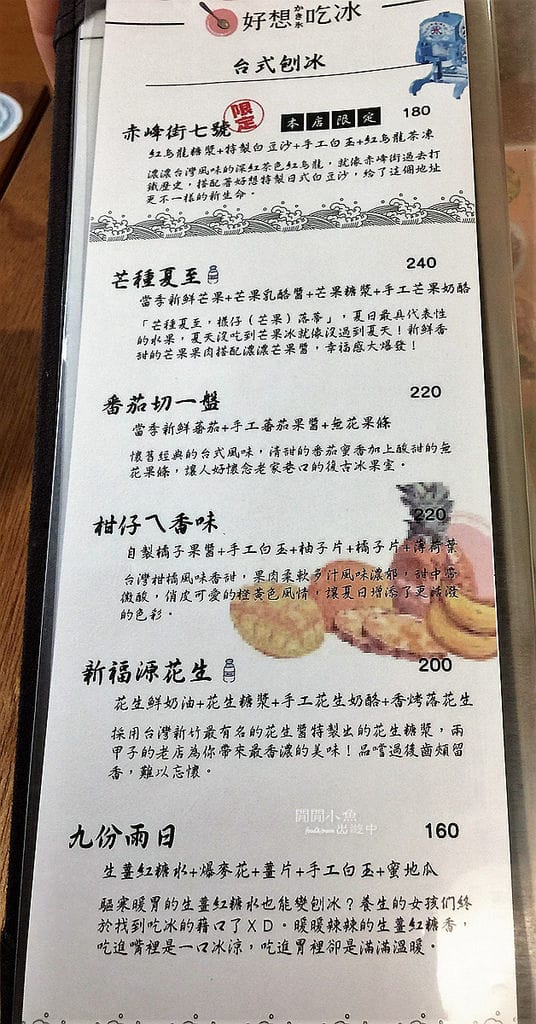 好想吃冰
かき氷
台式刨冰
赤峰街七號 限定 本店限定 180
紅烏龍糖漿+特製白豆沙+手工白玉+紅烏龍茶凍
濃濃台灣風味的深紅茶色紅烏龍，就像赤峰街過去打
鐵歷史，搭配著好想特製日式白豆沙，給了這個地址
更不一樣的新生命。
芒種夏至 240
當季新鮮芒果+芒果乳酪醬+芒果糖漿+手工芒果奶酪
「芒種夏至，檨仔（芒果）落蒂」，夏日最具代表性
的水果，夏天沒吃到芒果冰就像沒過到夏天！新鮮香
甜的芒果果肉搭配濃濃芒果醬，幸福感大爆發！
番茄切一盤 220
當季新鮮蕃茄+手工蕃茄果醬+無花果條
懷舊經典的台式風味，清甜的番茄蜜香加上酸甜的無
花果條，讓人好懷念老家巷口的復古冰果室。
柑仔ㄟ香味 220
自製橘子果醬+手工白玉+柚子片+橘子片+薄荷葉
台灣柑橘風味香甜，果肉柔軟多汁風味濃郁，甜中帶
微酸，俏皮可愛的橙黃色風情，讓夏日增添了更活潑
的色彩。
新福源花生 200
花生鮮奶油+花生糖漿+手工花生奶酪+香烤落花生
採用台灣新竹最有名的花生醬特製出的花生糖漿，兩
甲子的老店為你帶來最香濃的美味！品嚐過後齒頰留
香，難以忘懷。
閒閒小魚
出遊中
九份雨日 160
生薑紅糖水+爆麥花+薑片+手工白玉+蜜地瓜
驅寒暖胃的生薑紅糖水也能變刨冰？養生的女孩們終
於找到吃冰的藉口了ＸＤ。暖暖辣辣的生薑紅糖香，
吃進嘴裡是一口冰涼，吃進胃裡卻是滿滿溫暖。